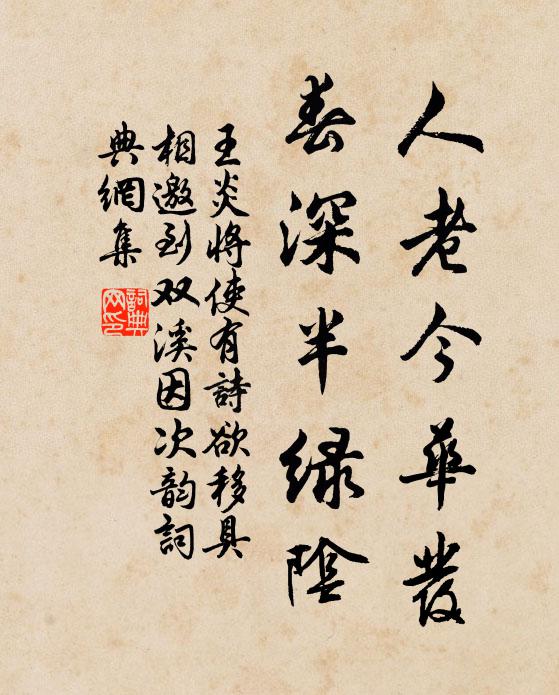 人老今華發
春深半緑陰
王炎將使有詩欲移具
相邀到双溪因次韵詞
典網集
詞典
网印